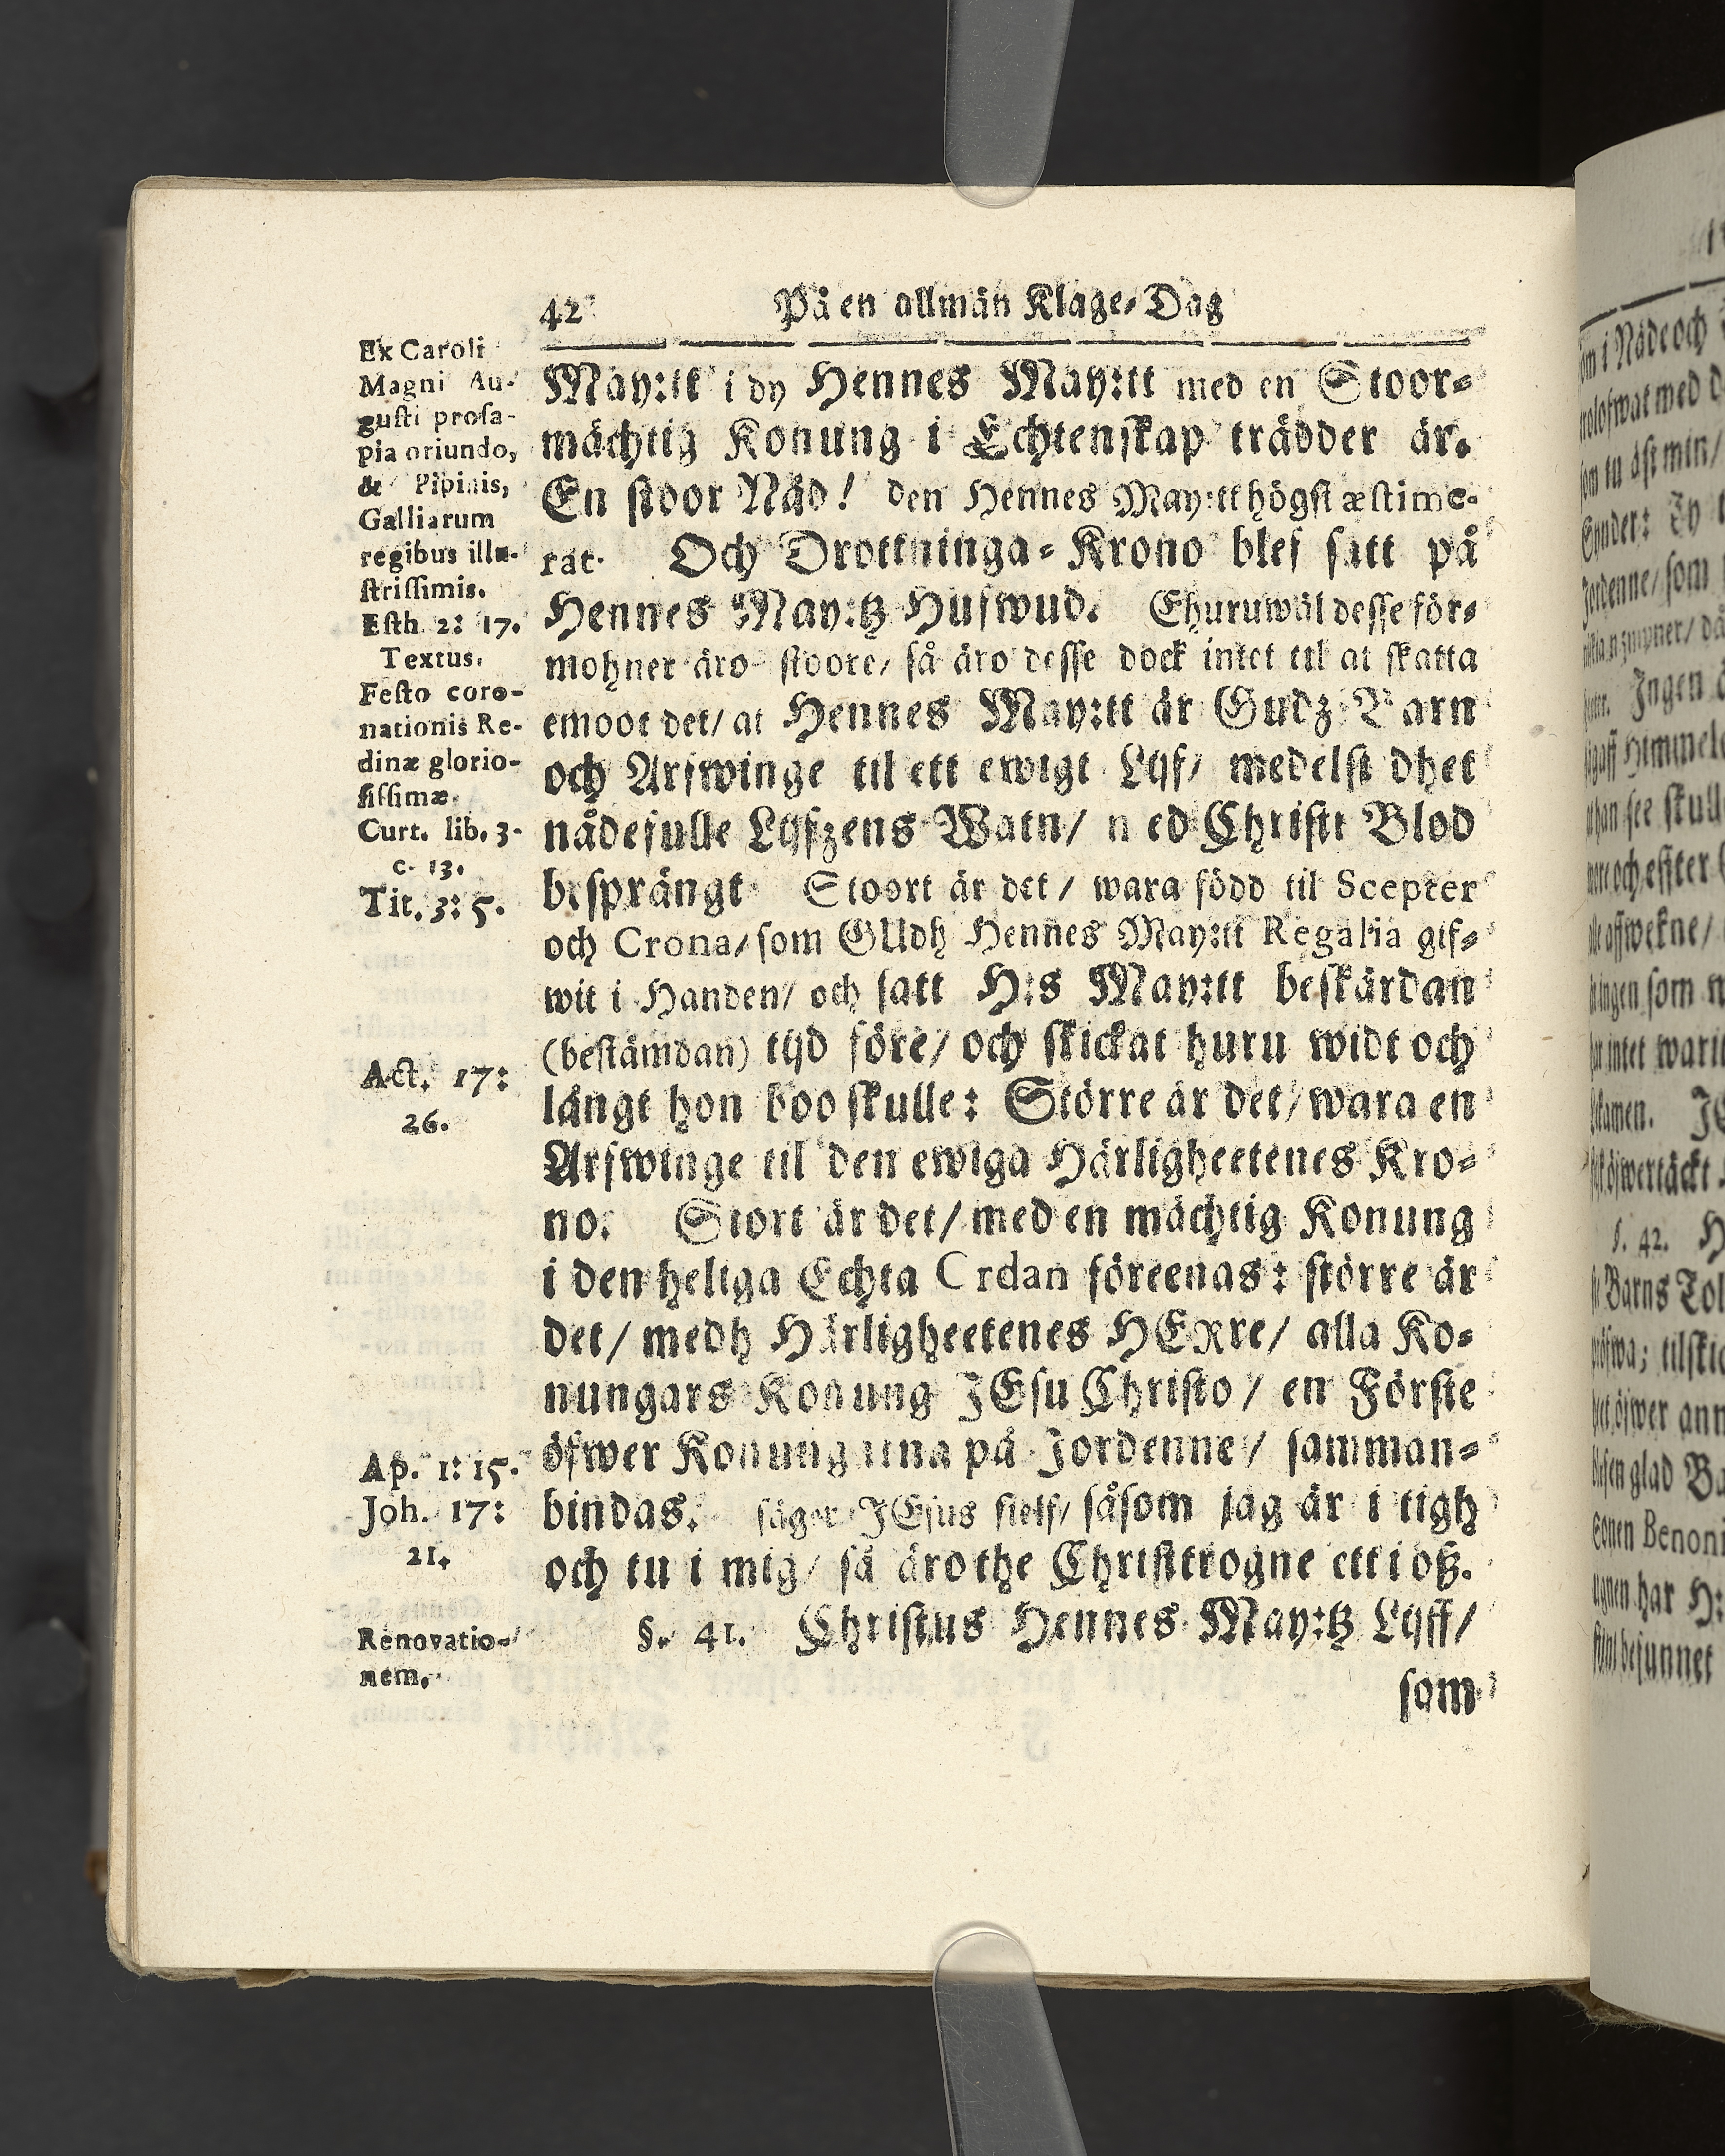 42
På en allmän Klage-Dag
Ex Caroli
Magni Au-
gusti prosa-
pia oriundo,
& Pipinis,
Galliarum
regibus illu-
strissimis.
Esth 2: 17.
Textus.
Festo coro-
nationis Re-
dinæ glorio-
sissimæ.
Curt. lib. 3.
c. 13.
Tit. 3: 5.
Act. 17:
26.
Ap. 1: 15.
Joh. 17:
21.
Renovatio-
nem.
May:tt i dy Hennes May:tt med en Stoor-
mächtig Konung i Echtenskap trädder är.
En stoor Nåd! den Hennes May:tt högst æstime-
rat. Och Drottninga-Krono blef satt på
Hennes May:tz Hufwud. Ehuruwäl desse för-
mohner äro stoore/ så äro desse dock intet til at skatta
emoot det/ at Hennes May:tt är Gudz Barn
och Arfwinge til ett ewigt Lijf/ medelst dhet
nådefulle Lijfzens Watn/ med Christi Blod
besprängt Stoort är det/ wara född til Scepter
och Crona/ som GUdh Hennes May:tt Regalia gif-
wit i Handen/ och satt H:s May:tt beskärdan
(bestämdan) tijd före/ och skickat huru widt och
långt hon boo skulle: Större är det/ wara en
Arfwinge til den ewiga Härligheetenes Kro-
no. Stort är det/ med en mächtig Konung
i den heliga Echta Ordan föreenas: större är
det/ medh Härligheetenes HERre/ alla Ko-
nungars Konung JEsu Christo/ en Förste
öfwer Konungarna på Jordenne/ samman-
bindas. säger JEsus sielf/ såsom jag är i tigh
och tu i mig/ så äro the Christtrogne ett i oß.
§. 41. Christus Hennes May:tz Lijff/
som